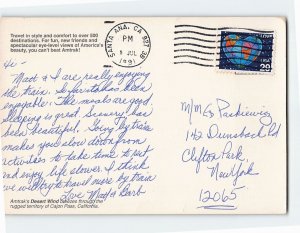 Travel in style and comfort to over 500
destinations. For fun, new friends and
spectacular eye-level views of America's
beauty, you can't beat Amtrak!
SANTA ANA, CA 927
PM
JUL
1991
29
Hi-
Matt & I are really enjoying
the train. So far it has been
enjoyable. The meals are good.
Sleeping is great, scenery has
been beautiful. Going by train
makes you slow down from
activities to take time to just
and enjoy life slower. I think
we will try to travel more by train
Love Matt & Barb
Amtrak's Desert Wind through the
rugged territory of Cajon Pass, California.
M/M G Packiewicz
142 Dunsbach Rd
Clifton Park,
New York
12065